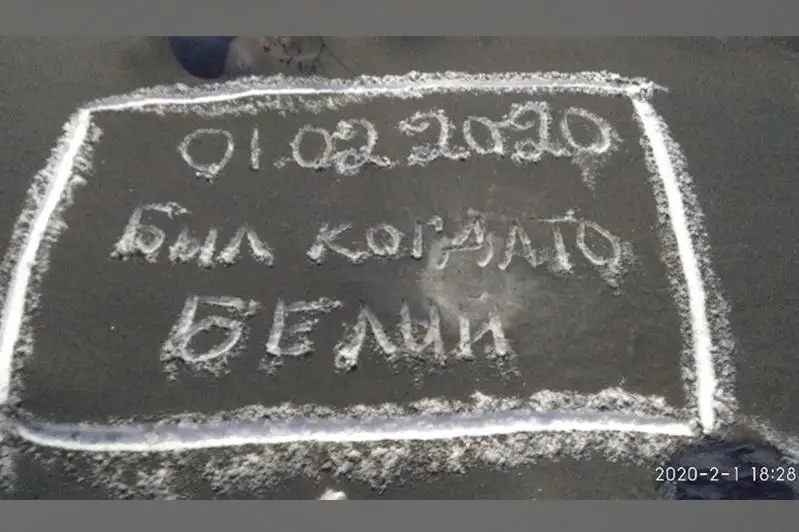 01.02 2020
был когдато
БЕЛИЙ
2020-2-1 18:28